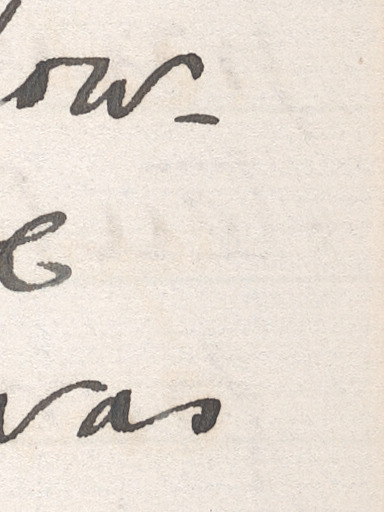 low-
e
was